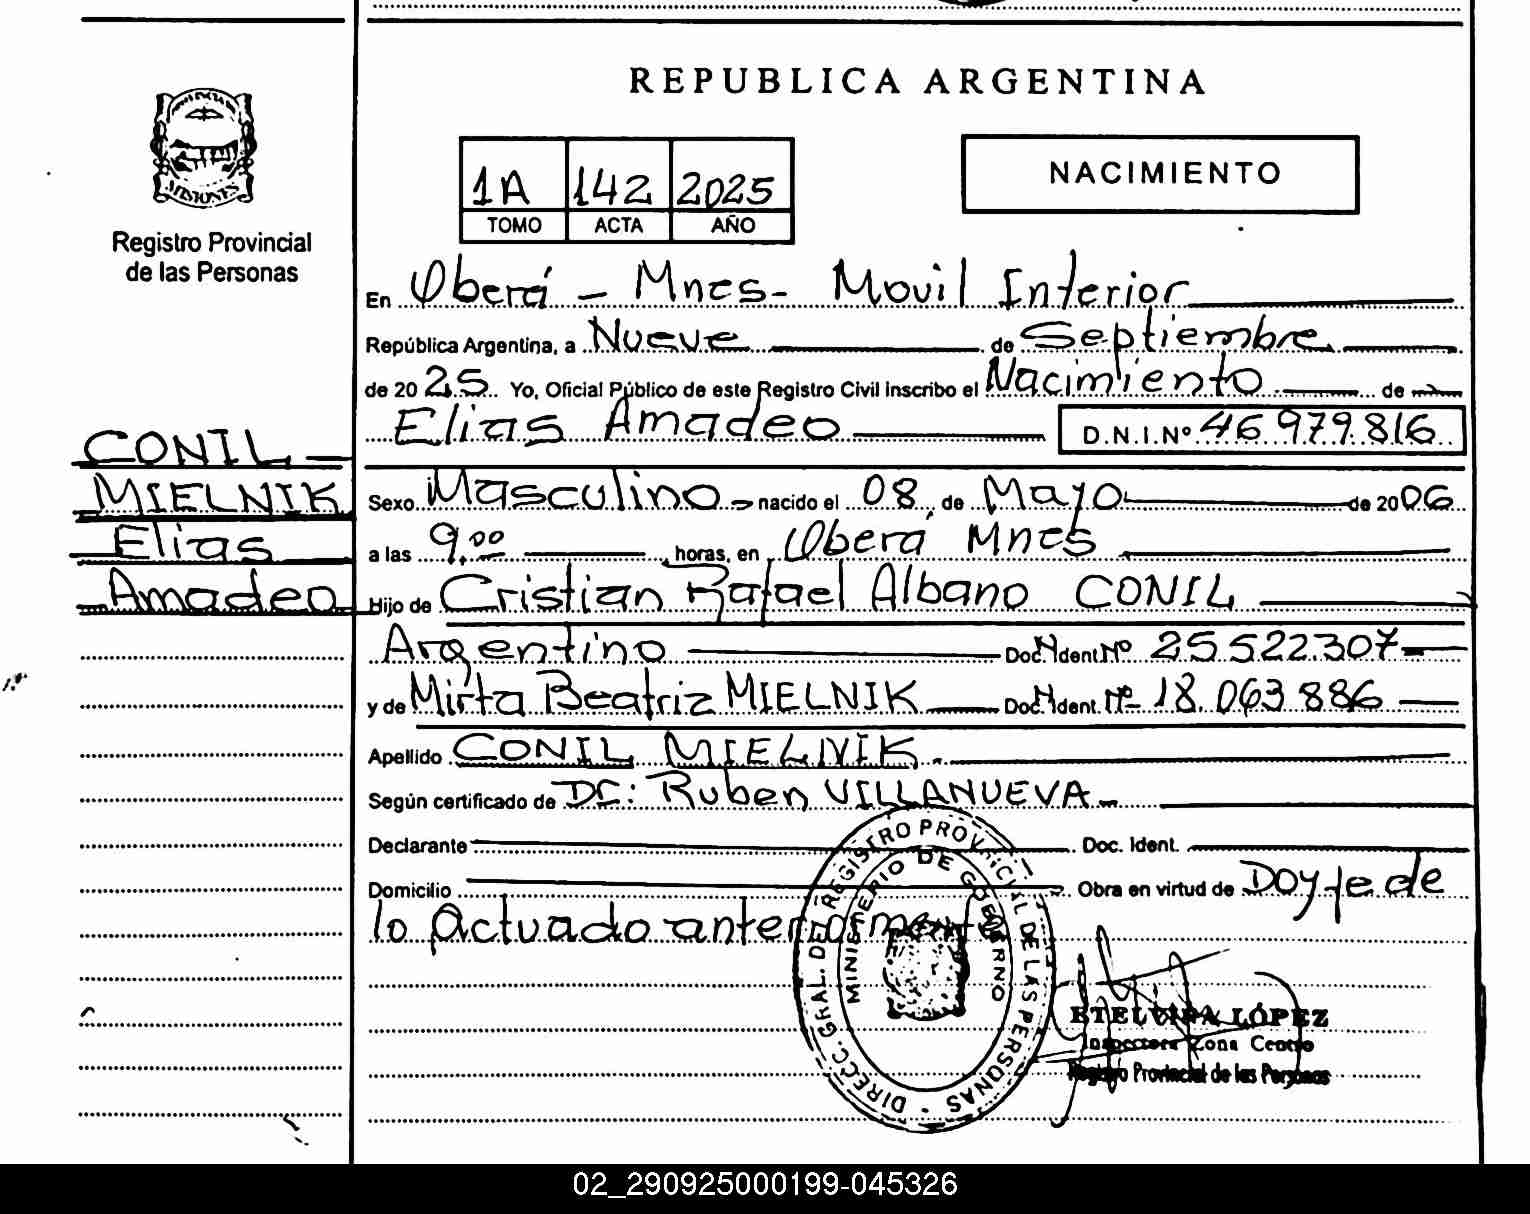 REPUBLICA ARGENTINA
MISIONES
Registro Provincial
de las Personas
1A 142 2025
TOMO ACTA AÑO
NACIMIENTO
En Oberá - Mnes- Movil Interior
República Argentina, a Nueve de Septiembre
de 2025 Yo, Oficial Público de este Registro Civil inscribo el Nacimiento de
Elias Amadeo D.N.I.Nº 46.979.816
CONIL
MIELNIK
Elias
Amadeo
Sexo Masculino nacido el 08 de Mayo de 2006
a las 9,00 horas, en Oberá Mnes
Hijo de Cristian Rafael Albano CONIL
Argentino Doc. Ident. Nº 25.522.307
y de Mirta Beatriz MIELNIK Doc. Ident. Nº 18.063 886
Apellido CONIL MIELNIK
Según certificado de Dr: Ruben VILLANUEVA
Declarante Doc. Ident.
Domicilio Obra en virtud de Doy fe de
lo Actuado anteriormente
DIRECC. GRAL. DEL REGISTRO PROVINCIAL DE LAS PERSONAS
MINISTERIO DE GOBIERNO
ETELVIRA LÓPEZ
Inspectora Zona Centro
Registro Provincial de las Personas
02_290925000199-045326